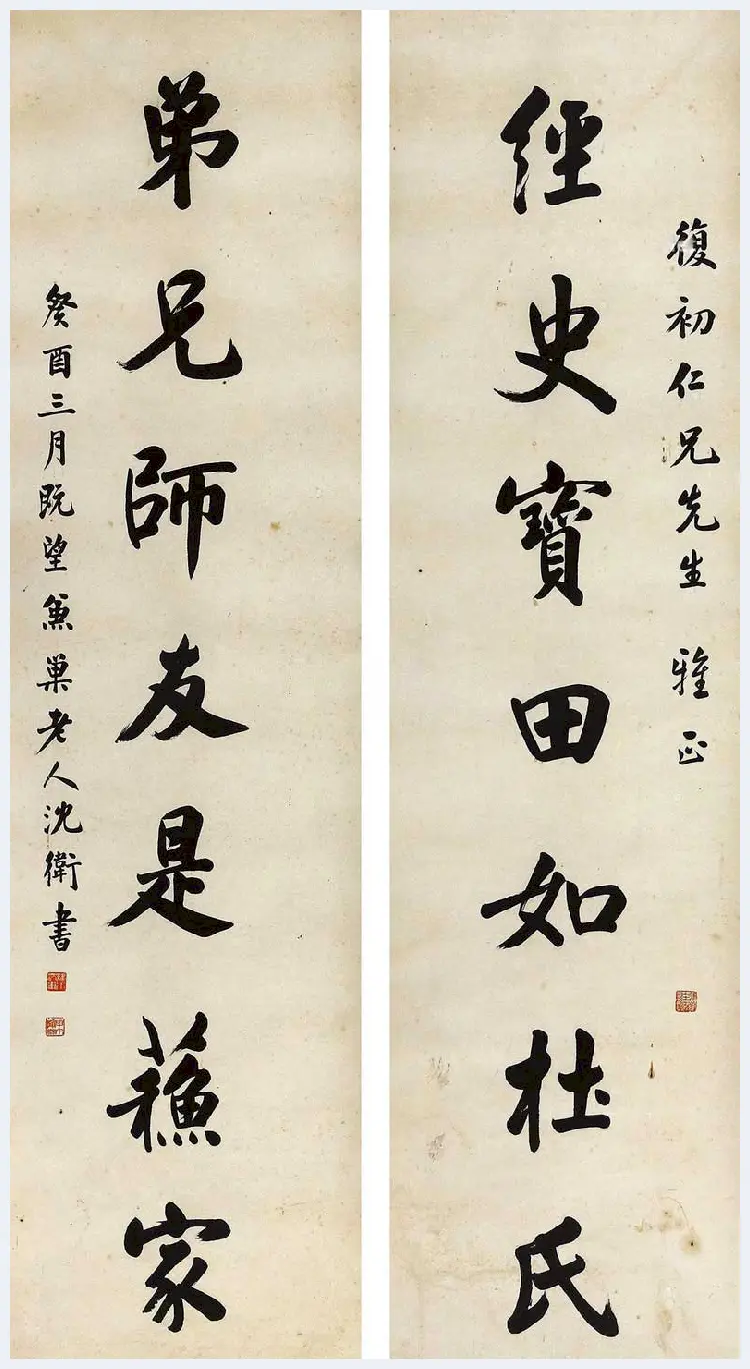 復初仁兄先生 雅正
經史寶田如杜氏
弟兄師友是蘓家
癸酉三月既望兼巢老人沈衛書